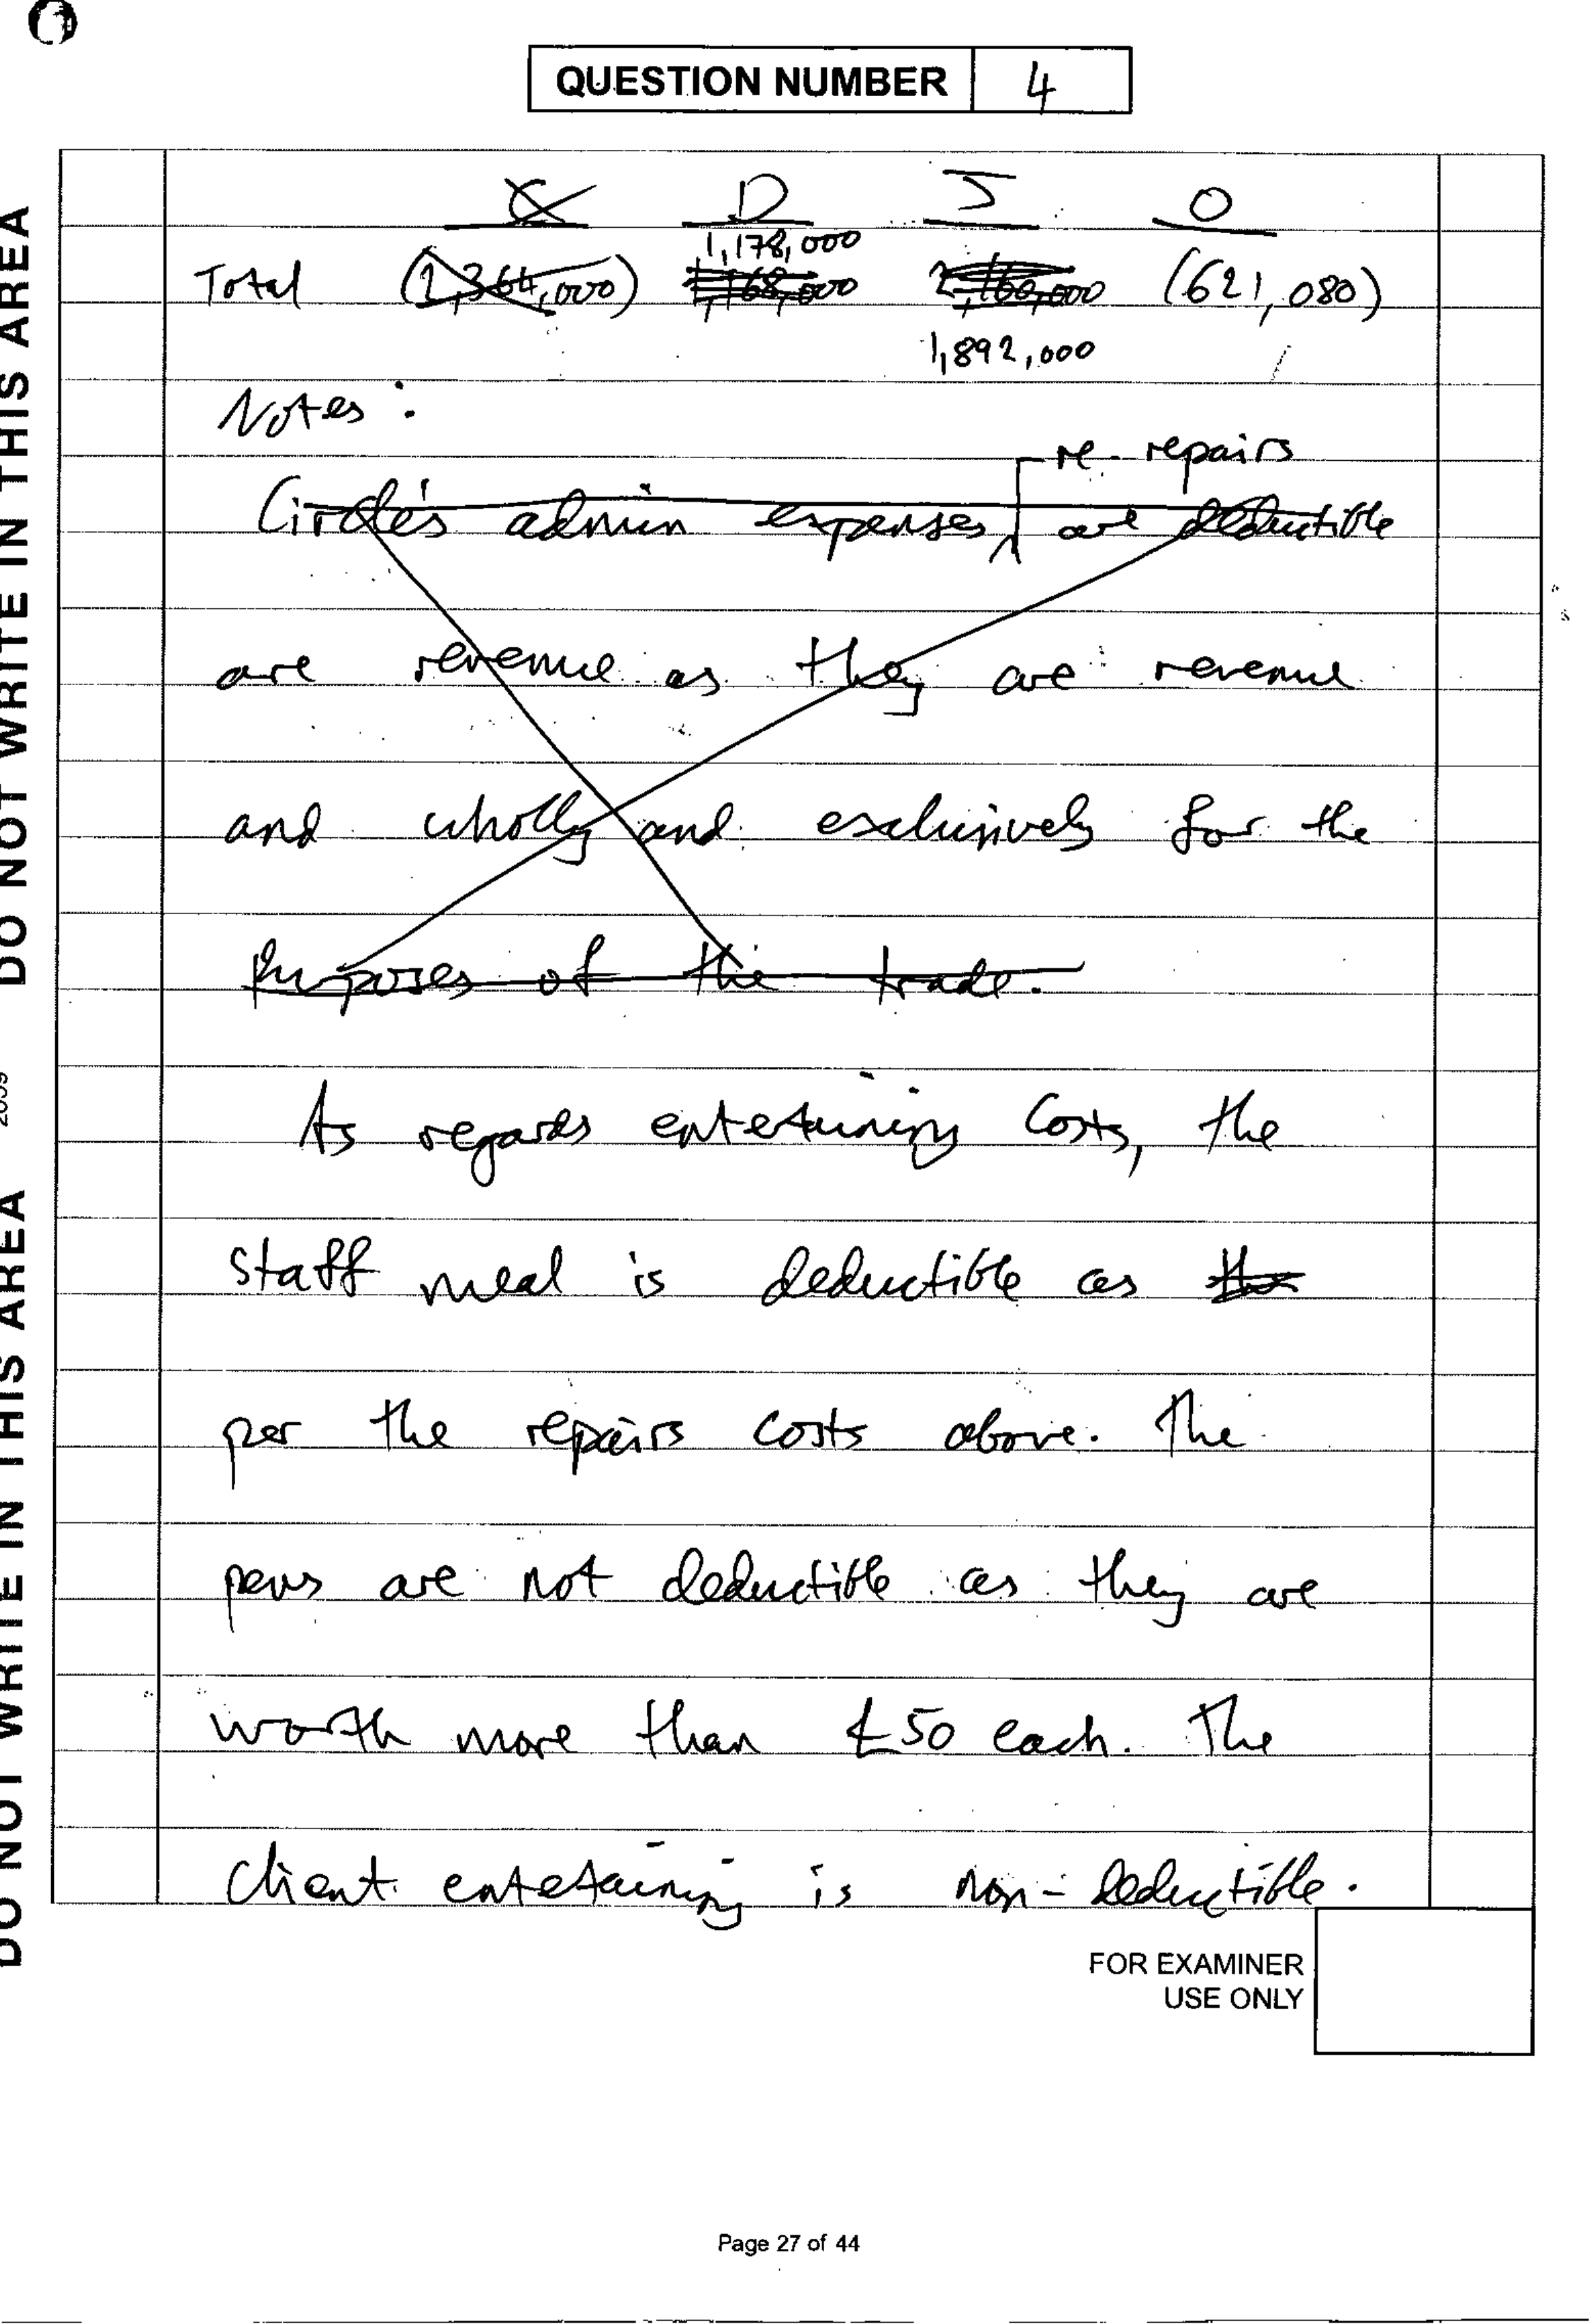 QUESTION NUMBER 4
C D J O
1,178,000
Total (1,364,000) 1,168,000 2,160,000 (621,080)
1,892,000
Notes :
re repairs
Circle's admin expenses, are deductible
are revenue as they are revenue
and wholly and exclusively for the
purposes of the trade.
As regards entertaining costs, the
staff meal is deductible as
per the repairs costs above. The
pens are not deductible as they are
worth more than £50 each. The
Client entertaining is non-deductible.
FOR EXAMINER
USE ONLY
Page 27 of 44
DO NOT WRITE IN THIS AREA
DO NOT WRITE IN THIS AREA